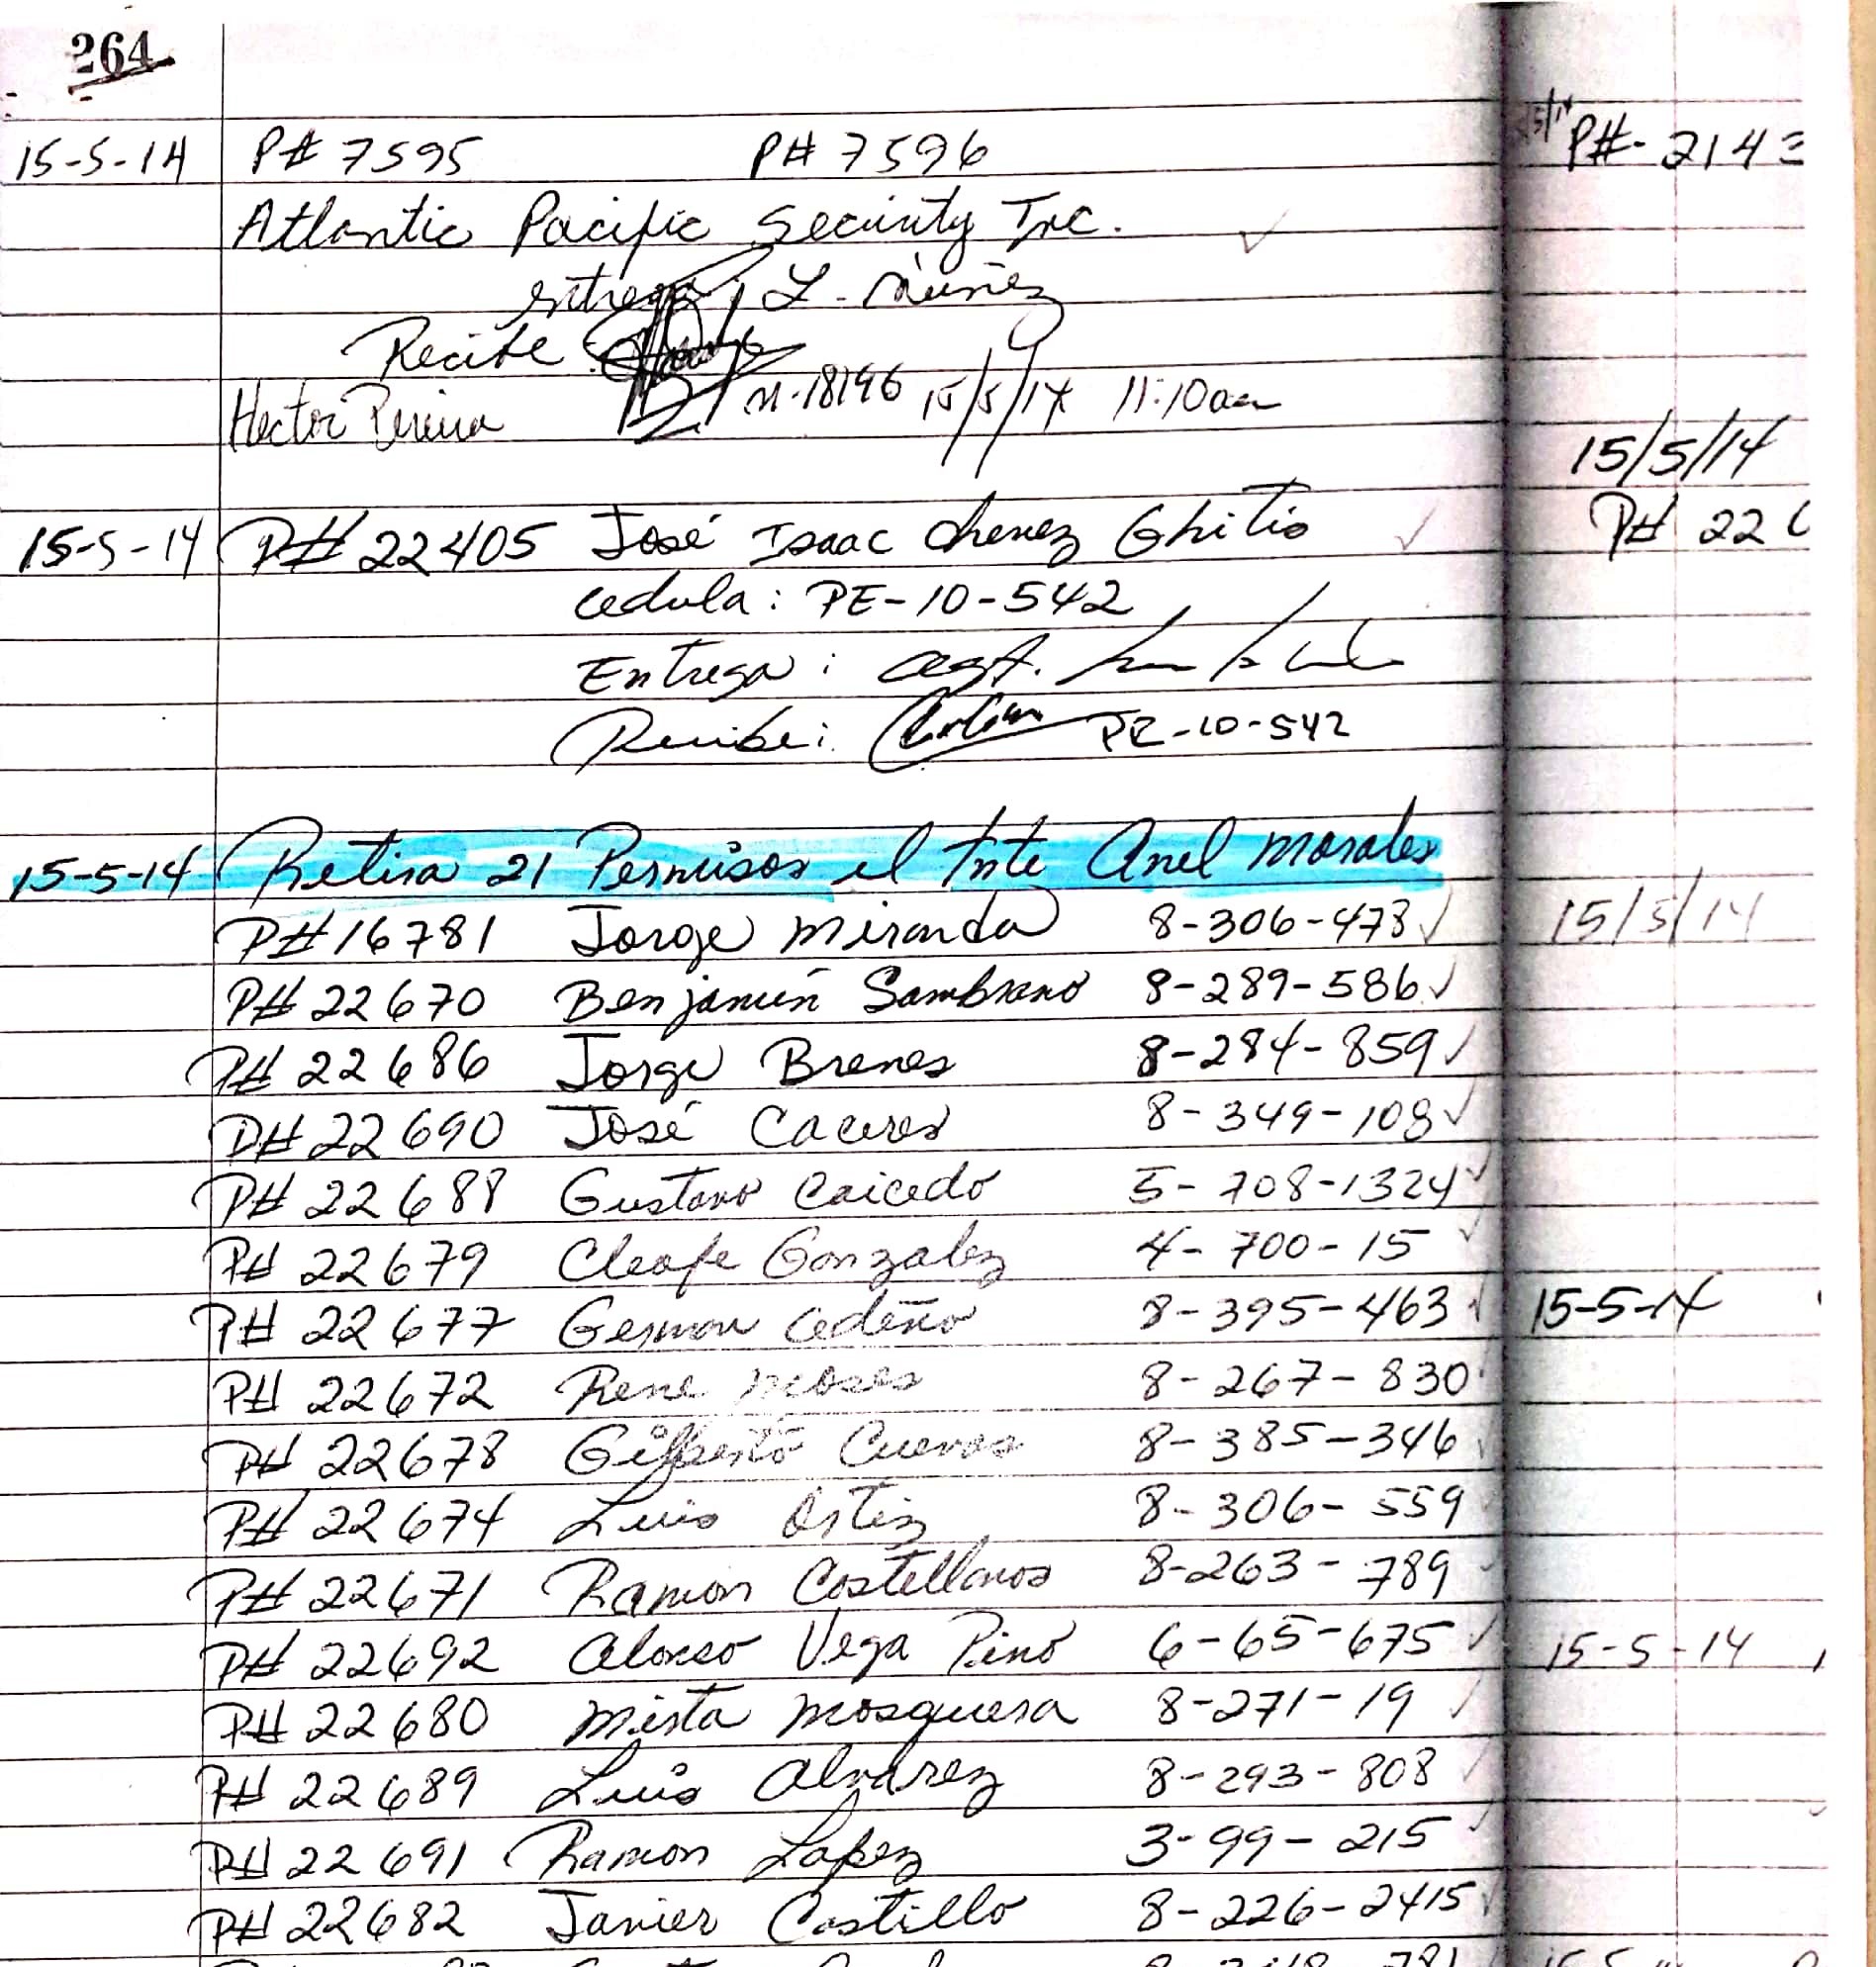 264
15-5-14 P# 7595 P# 7596
Atlantic Pacific Security Inc.
entrega; L. Núñez
Recibe
Hector Pereira 15/5/14 11:10am
15-5-14 P# 22405 José Isaac Chenez Ghitis
cedula: PE-10-542
Entrega: agt.
Recibe: PE-10-542
15-5-14 Retira 21 Permisos el Tnte Anel Morales
P# 16781 Jorge Miranda 8-306-478
P# 22670 Benjamín Sambrano 8-289-586
P# 22686 Jorge Brenes 8-284-859
P# 22690 José Caceres 8-349-108
P# 22688 Gustavo Caicedo 5-708-1324
P# 22679 Cleofe Gonzalez 4-700-15
P# 22677 German Cedeño 8-395-463
P# 22672 Rene Moses 8-267-830
P# 22678 Gilberto Cuevas 8-385-346
P# 22674 Luis Ortiz 8-306-559
P# 22671 Ramon Castellanos 8-263-789
P# 22692 Alonso Vega Pino 6-65-675
P# 22680 Mirta Mosquera 8-271-19
P# 22689 Luis Alvarez 8-293-808
P# 22691 Ramon Lopez 3-99-215
P# 22682 Javier Castillo 8-226-2415
P#- 214
15/5/14
P# 22
15/5/14
15-5-14
15-5-14